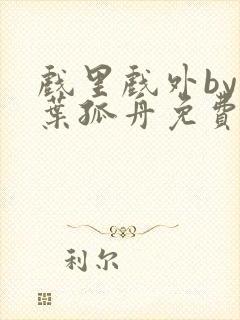 戲里戲外by一
葉孤舟免費
利尔